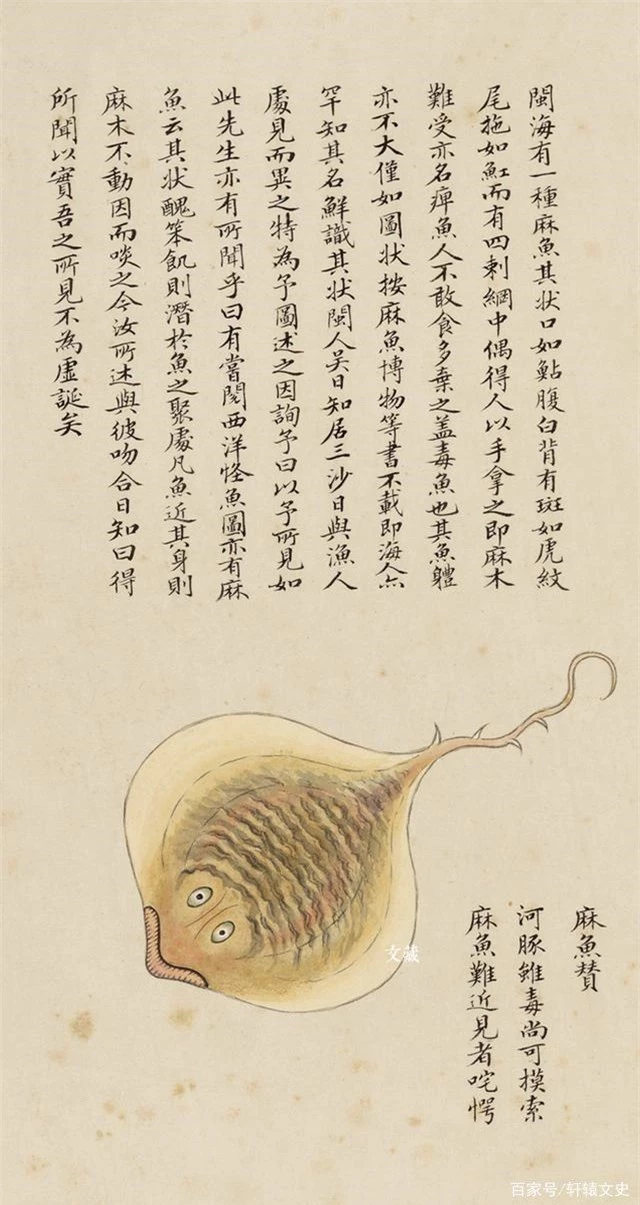 閩海有一種麻魚其狀口如鮎腹白背有斑如虎紋
尾拖如魟而有四刺網中偶得人以手拿之即麻木
難受亦名痺魚人不敢食多棄之盖毒魚也其魚軆
亦不大僅如圖狀按麻魚博物等書不載即海人亦
罕知其名鮮識其狀閩人吳日知居三沙日與漁人
處見而異之特為予圖述之因詢予曰以予所見如
此先生亦有所聞乎曰有嘗閱西洋怪魚圖亦有麻
魚云其狀醜笨飢則潛於魚之聚處凡魚近其身則
麻木不動因而啖之今汝所述與彼吻合日知曰得
所聞以實吾之所見不為虛誕矣
麻魚賛
河豚雖毒尚可摸索
麻魚難近見者咤愕
文藏
百家号/轩辕文史